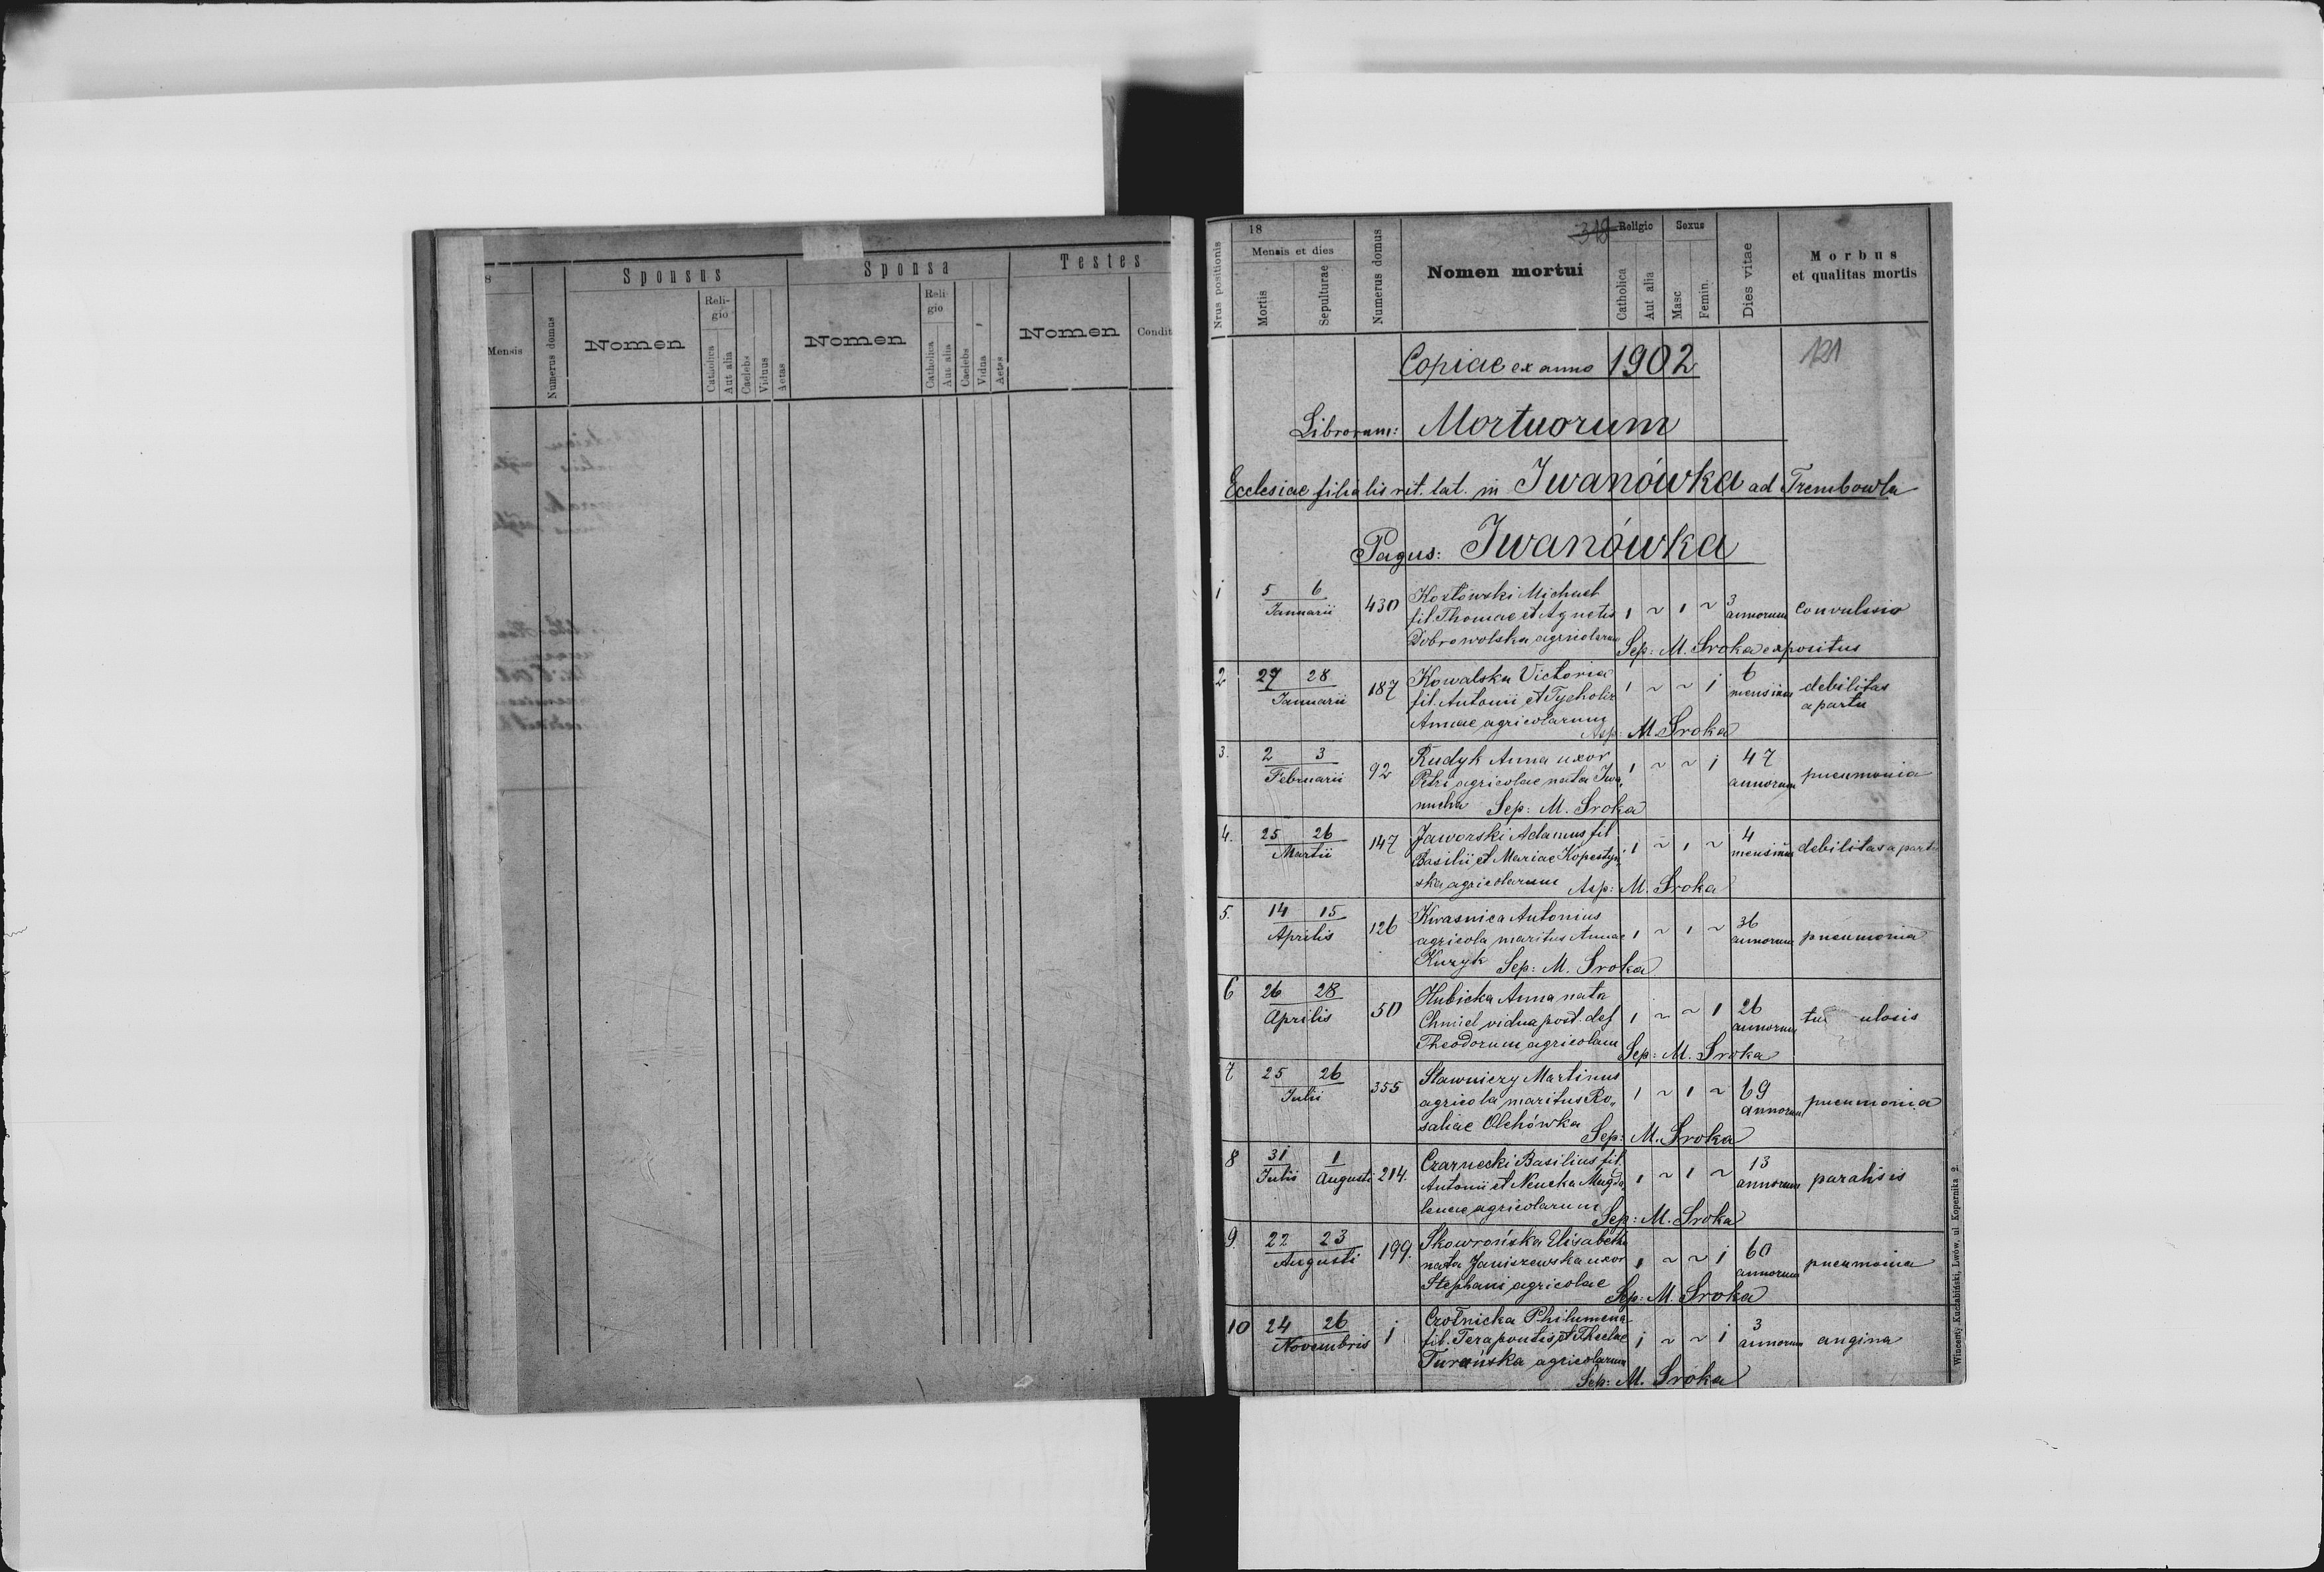 8
Mensis
Numerus domus
Sponsus
Nomen
Reli-
gio
Catholica
Aut alia
Caelebs
Viduus
Aetas
Sponsa
Nomen
Reli-
gio
Catholica
Aut alia
Caelebs
Vidua
Aetas
Testes
Nomen
Condit
Nrus positionis
18
Mensis et dies
Mortis
Sepulturae
Numerus domus
Nomen mortui
318
Religio
Catholica
Aut alia
Sexus
Masc
Femin.
Dies vitae
Morbus
et qualitas mortis
121
Copiae ex anno 1902
Librorum: Mortuorum
Ecclesiae filialis rit. lat. in Iwanówka ad Trembowla
Pagus: Iwanówka
1 5 6 Januarii 430 Kozłowski Michael
fil. Thomae et Agnetis 1 ~ 1 ~ 3 annorum convulsio
Dobrowolska agricolarum Sep: M. Sroka expositus
2 27 28 Januarii 187 Kowalska Victoria
fil. Antonii et Tycholiz 1 ~ ~ 1 6 mensium debilitas a partu
Annae agricolarum Asp: M. Sroka
3. 2 3 Februarii 92 Rudyk Anna uxor
Petri agricolae nata Iwa„ 1 ~ ~ 1 47 annorum pneumonia
nucha Sep: M. Sroka
4. 25 26 Martii 147 Jaworski Adamus fil.
Basilii et Mariae Kopestyń„ 1 ~ 1 ~ 4 mensium debilitas a partu
ska agricolarum Asp: M. Sroka
5. 14 15 Aprilis 126 Kwasnica Antonius
agricola maritus Annae 1 ~ 1 ~ 36 annorum pneumonia
Kuzyk Sep: M. Sroka
6 26 28 Aprilis 50 Hubicka Anna nata
Chmiel vidua post. def 1 ~ ~ 1 26 annorum tu ulosis
Theodorum agricolam Sep: M. Sroka
7 25 26 Julii 355 Sławniczy Martinus
agricola maritus Ro„ 1 ~ 1 ~ 69 annorum pneumonia
saliae Olchówka Sep: M. Sroka
8 31 Julii 1 Augusti 214. Czarnecki Basilius fil.
Antonii et Neucka Magda 1 ~ 1 ~ 13 annorum paralisis
lenae agricolarum Sep: M. Sroka
9. 22 23 Augusti 199. Skowrońska Elisabeth
nata Janiszewska uxor 1 ~ ~ 1 60 annorum pneumonia
Stephani agricolae Sep: M. Sroka
10 24 26 Novembris 1 Crotnicka Philumena
fil. Terapontis et Theclae 1 ~ ~ 1 3 annorum angina
Turańska agricolarum
Sep: M. Sroka
Wincenty Kuczabiński, Lwów, ul. Kopernika 2.